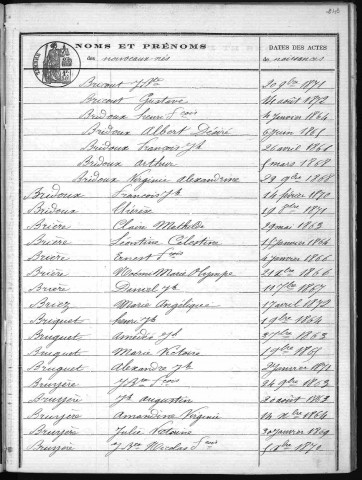 NOMS ET PRÉNOMS
DATES DES ACTES
des nouveaux nés
de naissances
Bricout J. Bte 20 9bre 1871
Bricout Gustave 14 août 1872
Bridoux henri fcois 4 janvier 1864
Bridoux Albert Désiré 6 juin 1865
Bridoux françois Jh 26 avril 1866
Bridoux Arthur 5 mars 1868
Bridoux Virginie alexandrine 29 9bre 1868
Bridoux françois Jh 14 février 1870
Bridoux 19 8bre 1871
Brière Claire Mathilde 29 mai 1863
Brière Léontine Célestine 15 janvier 1864
Brière Ernest fcois 4 janvier 1866
Brière Noémi Marie Olympe 1866
Brière Daniel Jh 11 7bre 1867
Briez Marie Angélique 17 avril 1872
Briquet henri Jh 19 9bre 1864
Bruguet amédée 1863
Bruguet Marie Victoire 1 9bre 1865
Bruguet Alexandre Jh janvier 1872
Bruyère J. Bte fcois 24 9bre 1863
Bruyère Jh augustin 20 août 1863
Bruyère Amandine Virginie 14 Xbre 1864
Bruyère Julie Victorine 20 janvier 1869
Bruyère J. Bte Nicolas 1870